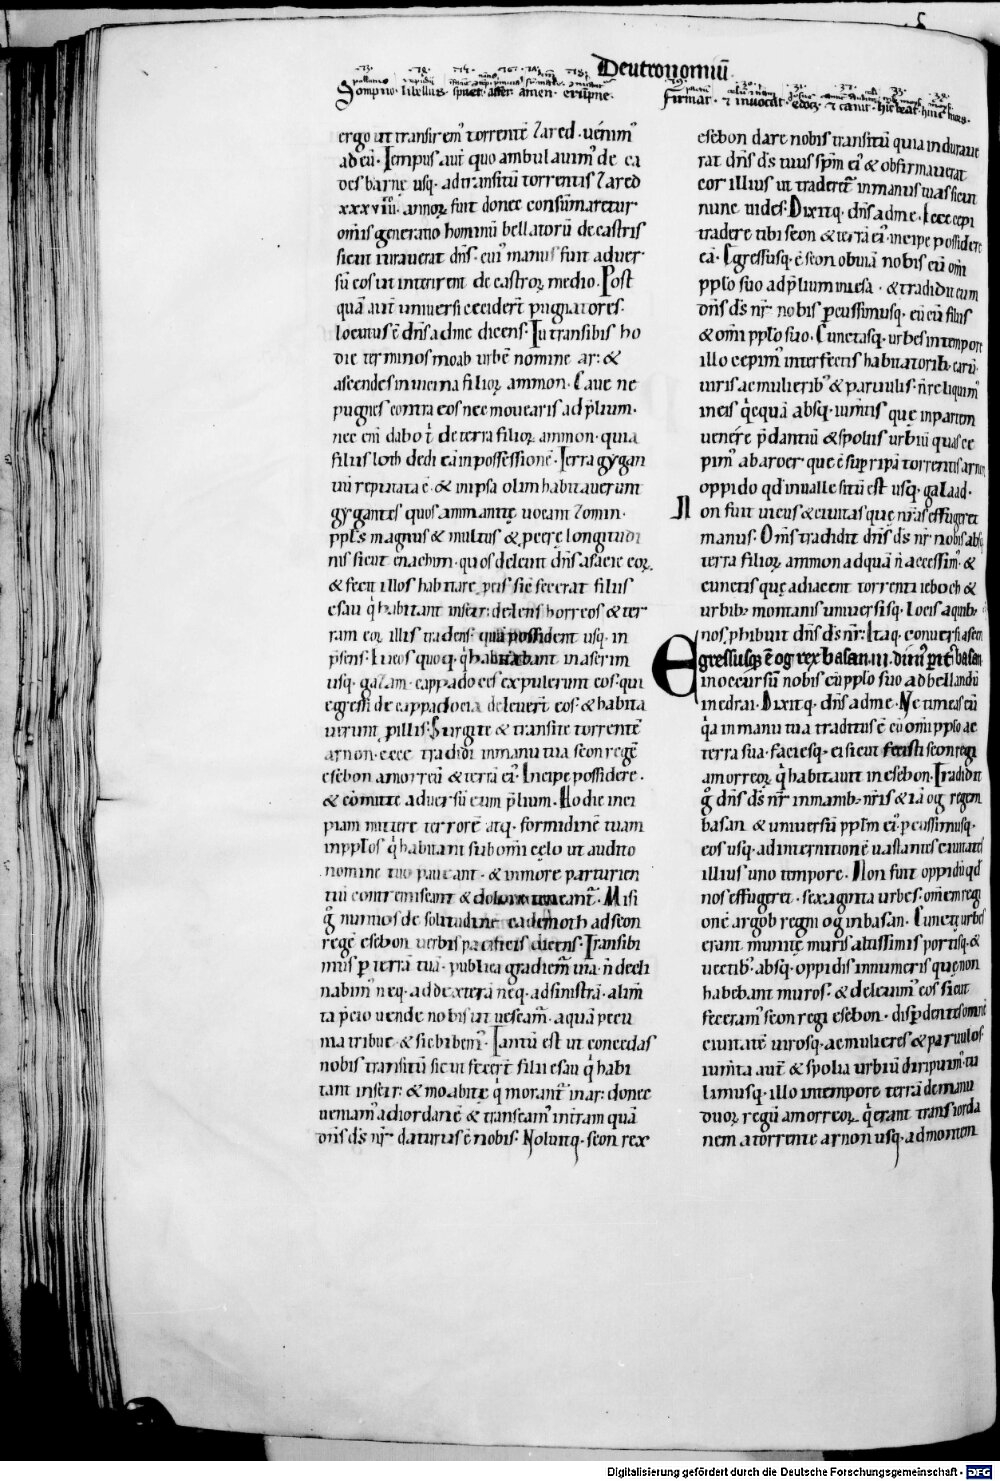 Deutronomiū
Sompno · libellus · spuet · affer · amen · erūpne ·
firmat · & invocat · edocȝ · & canit ·
ergo ut transirem᾽ torrentē Zared · uenim᾽
ad eū · Tempus aut̄ quo ambulauim᾽ de ca
des barne usq· ad transitū torrentis Zared
xxxviii · annoꝝ fuit donec consūmaretur
om̄is generatio hominū bellatorū de castris
sicut iurauerat dn̄s · cui᾽ manus fuit aduer
sū eos ut interirent de castroꝝ medio · Post
quā aut̄ uniuersi cecidert̄ pugnatores ·
locutus ē dn̄s ad me dicens · Tu transibis ho
die terminos moab urbē nomine ar : &
accedes in uicina filioꝝ ammon · Caue ne
pugnes contra eos nec mouearis ad p̄lium ·
nec eni dabo t̄ de terra filioꝝ ammon · quia
filiis loth dedi eā in possessionē · Terra gygan
tū reputata ē · & in ipsa olim habitauerunt
gygantes quos ammanitę uocant Zomin ·
ppl̄s magnus & multus & pcere longitudi
nis sicut enachim · quos deleuit dn̄s a facie eoꝝ
& fecit illos habitare p eis sic̄ fecerat filiis
esau q̄ habitant in seir : delens horreos & ter
ram eoꝝ illis tradens · quā possident usq· in
p̄sens · Eueos quoq· q̄ habitabant in aserim
usq· gazam · cappadoces expulerunt eos · qui
egressi de cappadocia deleuert̄ eos · & habita
uerunt p illis · Surgite & transite torrentē
arnon · ecce tradidi in manu tua seon regē
esebon amorreū & terrā ei᾽ · Incipe possidere ·
& comitte aduersū eum p̄lium · Hodie inci
piam mittere terrorē atq· formidinē tuam
in ppl̄os q̄ habitant sub om̄i cęlo ut audito
nomine tuo paueant · & in more parturien
tiū contremiscant & dolore teneant̄ · Misi
g᾽ nuntios de solitudine cademoth ad seon
regē esebon uerbis pacificis dicens · Transibi
mus ꝑ terrā tuā · publica gradiem̄ uia · n̄ decli
nabim᾽ neq· ad dexterā neq· ad sinistrā · alim̄
ta p̄cio uende nobis ut uescam̄ · aquā pecu
nia tribue & sic bibem᾽ · Tantū est ut concedas
nobis transitū sicut fecert̄ filii esau q̄ habi
tant in seir : & moabitę q̄ morant̄ in ar : donec
ueniam᾽ ad iordanē & transeam᾽ in terram quā
dn̄s ds̄ nr̄ daturus ē nobis · Noluitq· seon rex
esebon dare nobis transitū quia induraue
rat dn̄s ds̄ tuus spm̄ ei᾽ & obfirmauerat
cor illius ut traderet̄ in manus tuas sicut
nunc uides · Dixitq· dn̄s ad me · Ecce cepi
tradere tibi seon & terrā ei᾽ incipe possidere
eā · Egressusq· ē seon obuiā nobis cū om̄i
pplo suo ad p̄lium in iesa · & tradidit eum
dn̄s ds̄ nr̄ nobis percussimusq· eū cū filiis
& om̄i pplo suo · Cunctasq· urbes in tempore
illo cepim᾽ interfectis habitatorib· earū
uiris ac mulierib᾽ & paruulis · n̄ reliquim᾽
in eis q̄cquā absq· iumtis que in partem
uenere p̄dantiū & spoliis urbiū quas ce
pim᾽ ab aroer que ē suꝑ ripā torrentis arnon
oppido qd̄ in ualle sitū est usq· galaad ·
Non fuit uicus & ciuitas quę nr̄as effugeret
manus · Om̄s tradidit dn̄s ds̄ nr̄ nobis absq·
terra filioꝝ ammon ad quā n̄ accessim᾽ · &
cunctis quę adiacent torrenti ieboch &
urbib· montanis uniuersisq· locis a quib·
nos phibuit dn̄s ds̄ nr̄ · Itaq· conuersi ascen
Egressusq· ē og rex basan dim᾽ ꝑ it̄ basan
in occursū nobis cū pplo suo ad bellandū
in edrai · Dixitq· dn̄s ad me · Ne timeas eū
q̄a in manu tua traditus ē cū om̄i pplo ac
terra sua · faciesq· ei sicut fecisti seon regi
amorreoꝝ q̄ habitauit in esebon · Tradidit
g᾽ dn̄s ds̄ nr̄ in manib· nr̄is & iā og regem
basan & uniuersū pplm̄ ei᾽ · pcussimusq·
eos usq· ad internitionē uastantes ciuitates
illius uno tempore · Non fuit oppidū qd̄
nos effugeret · sexaginta urbes · om̄em regi
onē argob regni og in basan · Cunctę urbes
erant munitę muris altissimis portisq· &
uectib᾽ · absq· oppidis innumeris quę non
habebant muros · & deleuim᾽ eos sicut
feceram᾽ seon regi esebon · disꝑdentes omnē
ciuitatē uirosq· ac mulieres & paruulos
ium̄ta aut̄ & spolia urbiū diripuim᾽ · tu
limusq· illo in tempore terrā de manu
duoꝝ regū amorreoꝝ · q̄ erant trans iorda
nem a torrente arnon usq· ad montem
Digitalisierung gefördert durch die Deutsche Forschungsgemeinschaft - DFG